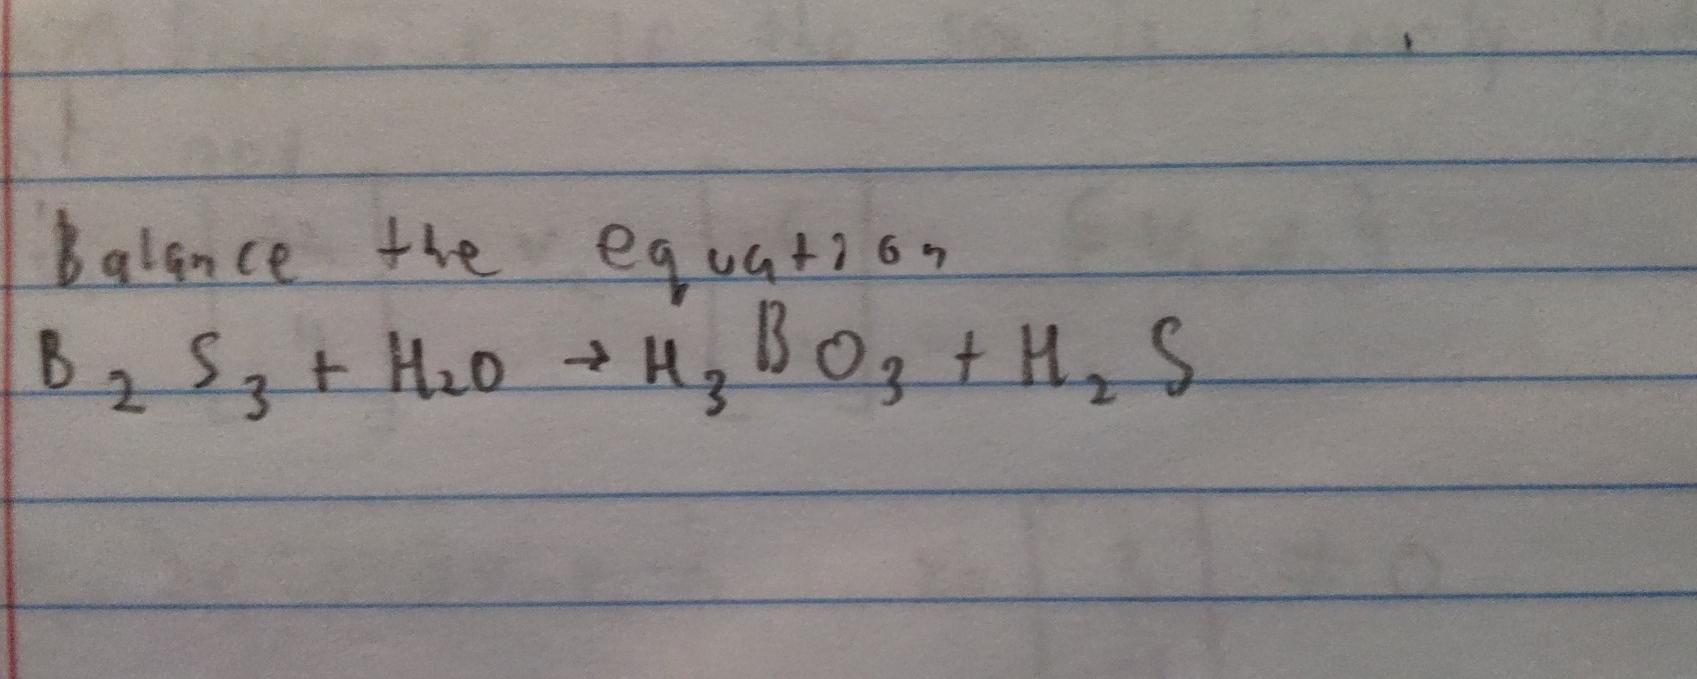 Balance the equation
B₂S₃ + H₂O → H₃BO₃ + H₂S